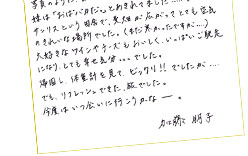 写真のように、
妹は「おばバカだ。」とあきれてました……。
サンリスという田舎で、麦畑が広がってとても空気
のきれいな場所でした。（まだ寒かったですが…）
大好きなワインやチーズもおいしく、いっぱいご馳走
になり、しても幸せ気分。。。でした。
帰国し、体重計を見て、ビックリ!!でしたが……
でも、リフレッシュできた、旅でした。
今度はいつ会いに行こうかな ー 。
加藤 明子